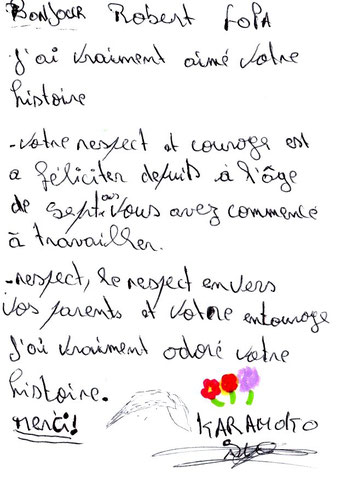 BONJOUR Robert LOPA
J'ai vraiment aimé votre
histoire
-votre respect et courage est
a féliciter depuits à l'âge
de septs ans vous avez commencé
à travailler.
-respect, le respect envers
vos parents et votre entourage
J'ai vraiment adoré votre
histoire.
merci!
KARAMOKO